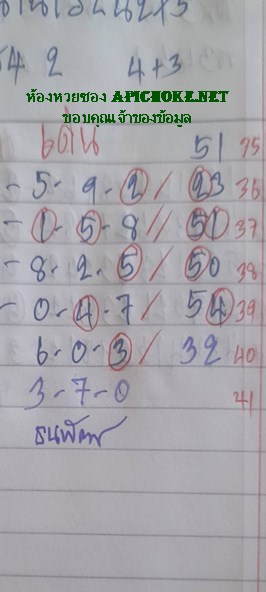 54 2 4+3
ห้องหวยซอง APICHOKE.NET
ขอบคุณเจ้าของข้อมูล
เด่น 51 35
- 5 - 9 - 2 / 23 36
- 1 - 5 - 8 // 51 37
- 8 - 2 - 5 / 50 38
- 0 - 4 - 7 / 54 39
6 - 0 - 3 / 32 40
3 - 7 - 0 41
ธนพัฒ